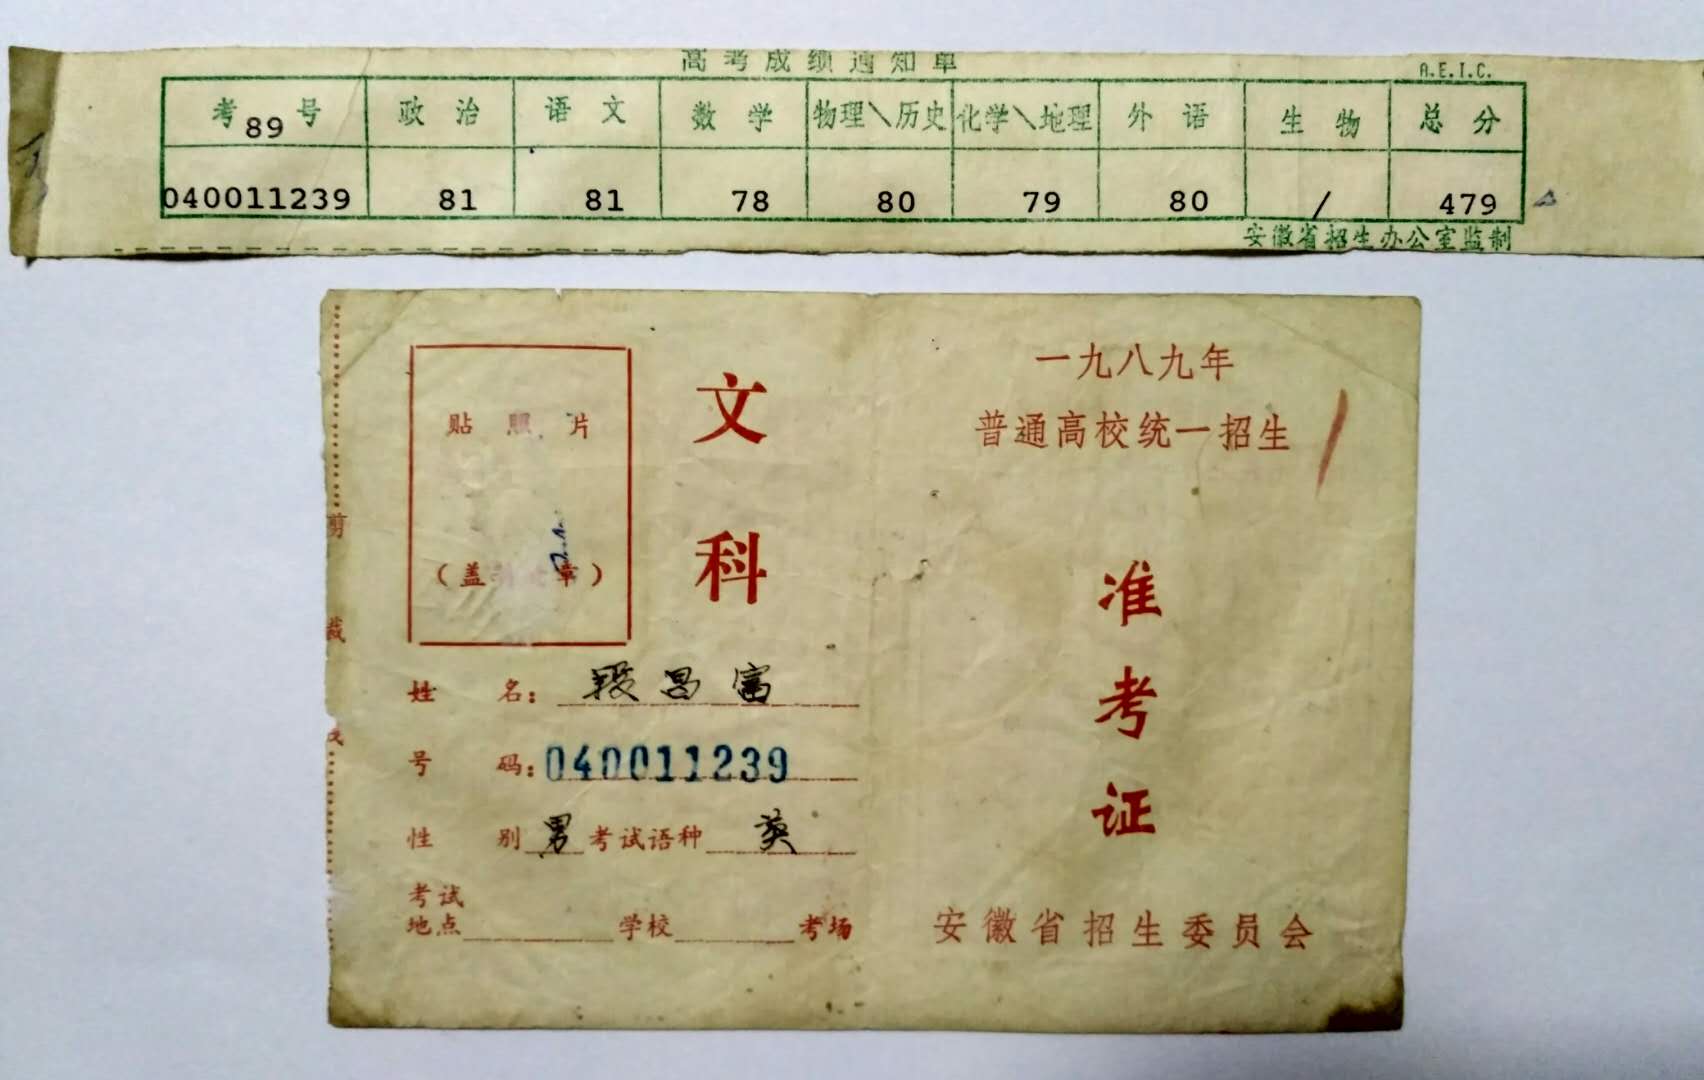 高考成绩通知单
A.E.I.C.
考号 政治 语文 数学 物理\历史 化学\地理 外语 生物 总分
89
040011239 81 81 78 80 79 80 / 479
安徽省招生办公室监制
贴照片
(盖 章)
文科
姓名: 段昌富
号码: 040011239
性别 男 考试语种 英
考试
地点 学校 考场
剪裁
一九八九年
普通高校统一招生
准考证
安徽省招生委员会